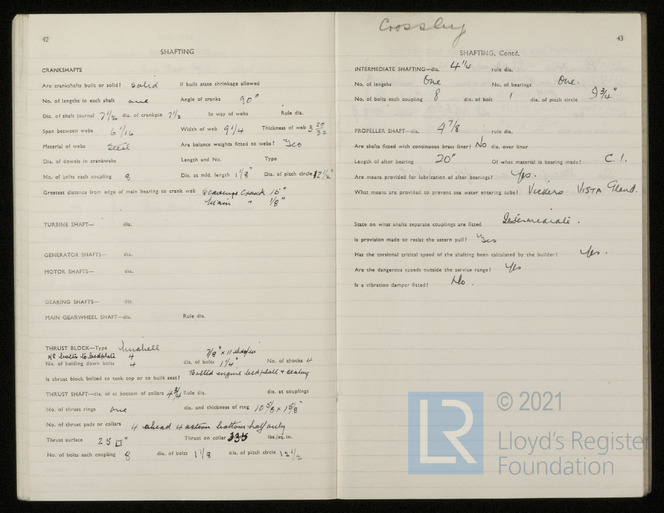 42
SHAFTING
CRANKSHAFTS
Are crankshafts built or solid? Solid If built state shrinkage allowed
No. of lengths in each shaft one Angle of cranks 90°
Dia. of shaft journal 7 1/2 dia. of crankpin 7 1/2 in way of webs Rule dia.
Span between webs Width of web 9 1/4 Thickness of web
Material of webs Steel Are balance weights fitted to webs? Yes
Dia. of dowels in crankwebs Length and No. Type
No. of bolts each coupling 8 Dia. at mid. length 1 1/8" Dia. of pitch circle 12 1/2"
Greatest distance from edge of main bearing to crank web Scavenge Crank
Main " 1/8"
TURBINE SHAFT— dia.
GENERATOR SHAFTS— dia.
MOTOR SHAFTS— dia.
GEARING SHAFTS— dia.
MAIN GEARWHEEL SHAFT—dia. Rule dia.
THRUST BLOCK—Type Michell
No. of holding down bolts 4 dia. of bolts 1 1/4" No. of chocks 4
Is thrust block bolted to tank top or to built seat? Bolted engine bedplate &
THRUST SHAFT—dia. at bottom of collars 4 3/4 Rule dia. dia. at couplings
No. of thrust rings one dia. and thickness of ring 10 5/8 x 1 5/8"
No. of thrust pads or collars 4 ahead 4 astern bottom half only
Thrust surface 25 □" Thrust on collar lbs./sq. in.
No. of bolts each coupling 8 dia. of bolts 1 1/8 dia. of pitch circle 12 1/2
Crossley
43
SHAFTING, Contd.
INTERMEDIATE SHAFTING—dia. 4 1/4 rule dia.
No. of lengths One No. of bearings One.
No. of bolts each coupling 8 dia. of bolt 1 dia. of pitch circle 9 3/4"
PROPELLER SHAFT—dia. 4 7/8 rule dia.
Are shafts fitted with continuous brass liner? No dia. over liner
Length of after bearing 20" Of what material is bearing made? C.I.
Are means provided for lubrication of after bearings? Yes.
What means are provided to prevent sea water entering tube? Vickers Vista Gland.
State on what shafts separate couplings are fitted Intermediate.
Is provision made to resist the astern pull? Yes
Has the torsional critical speed of the shafting been calculated by the builder? Yes.
Are the dangerous speeds outside the service range? Yes
Is a vibration damper fitted? No.
© 2021
LR
Lloyd's Register
Foundation